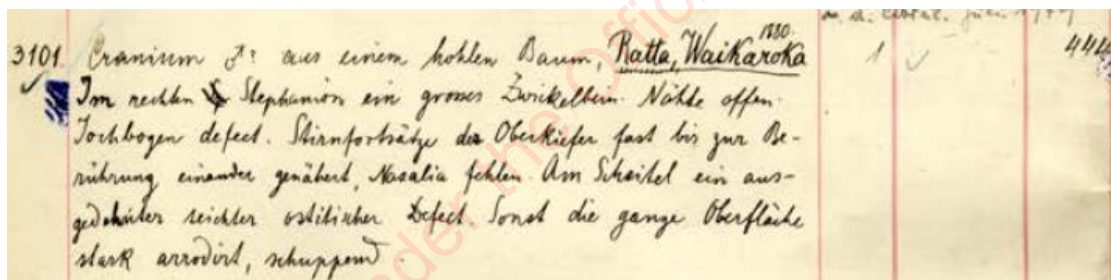 1880.
3101 Cranium ♂? aus einem hohlen Baum, Ratta, Waikaroka 1 444
Im rechten Stephanion ein grosses Zwickelbein. Nähte offen.
Jochbogen defect. Stirnfortsätze der Oberkiefer fast bis zur Be-
rührung einander genähert, Nasalia fehlen. Am Scheitel ein aus-
gedehnter seichter ostitischer Defect. Sonst die ganze Oberfläche
stark arrodirt, schuppend.